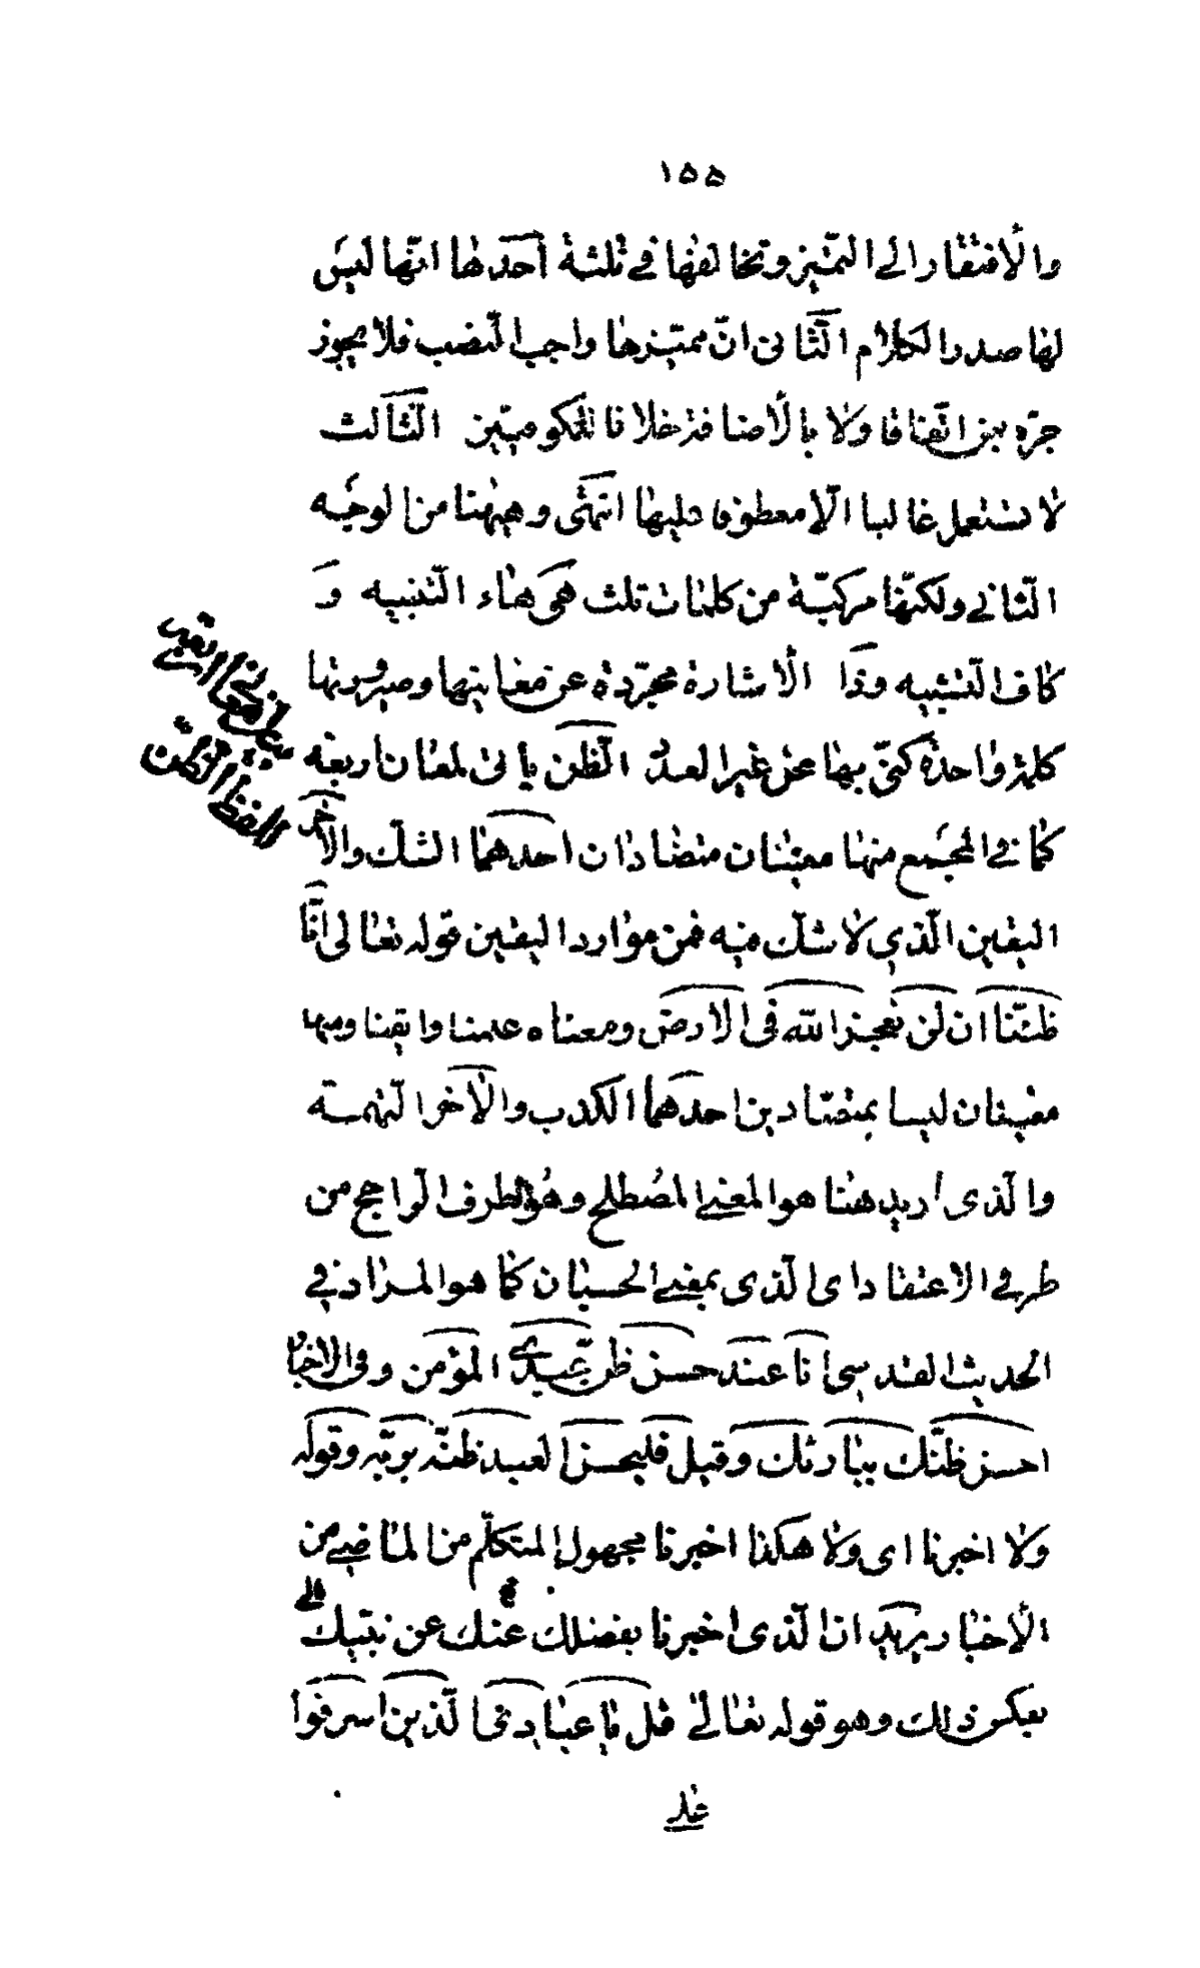 ١٥٥
والافتقار الى التمّيز وتخالفها في ثلثة أحدها انّها ليس
لها صدر الكلام الثّانى انّ ممّيزها واجب النّصب فلا يجوز
جرّه بمن اتّفاقا ولا بالاضافة خلافا للكوميّين الثّالث
لا تستعمل غالبا الّا معطوفا عليها انتهى وهيهنا من الوجه
الثّاني ولكنّها مركبّة من كلمات ثلث هى هاء التّنبيه و
كاف التّشبيه وذا الاشارة مجرّدة عن معانيها وصيرورتها
كلمة واحدة كنّى بها عن غير العدد الظّن يأتى لمعان اربعة
بيان معانى اربعة
للفظ الظّن
كما في المجمع منها معنيان متضادان احدهما الشّك والاخر
اليقين الّذي لا شكّ فيه فمن موارد اليقين قوله تعالى انّا
ظننّا ان لن نعجز الله فى الارض ومعناه علمنا وايقنا ومنها
معنيان ليسا بمتضّادين احدهما الكذب والاخر التّهمة
والّذى اريد هنا هو المعنى المصطلح وهو الطرف الرّاجح من
طرفي الاعتقاد اى الّذى بمعنى الحسبان كما هو المراد في
الحديث القدسى انا عند حسن ظنّ عبدي المؤمن وفى الاخبار
احسن ظنّك ببارئك وقيل فليحسن العبد ظنّه بربّه وقوله
ولا اخبرنا اى ولا هكذا اخبرنا مجهول المتكلّم من الماضي من
الاخبار يريد انّ الّذى اخبرنا بفضلك عنك عن نبيّك
بعكس ذلك وهو قوله تعالى قل يا عبادى الّذين اسرفوا
على